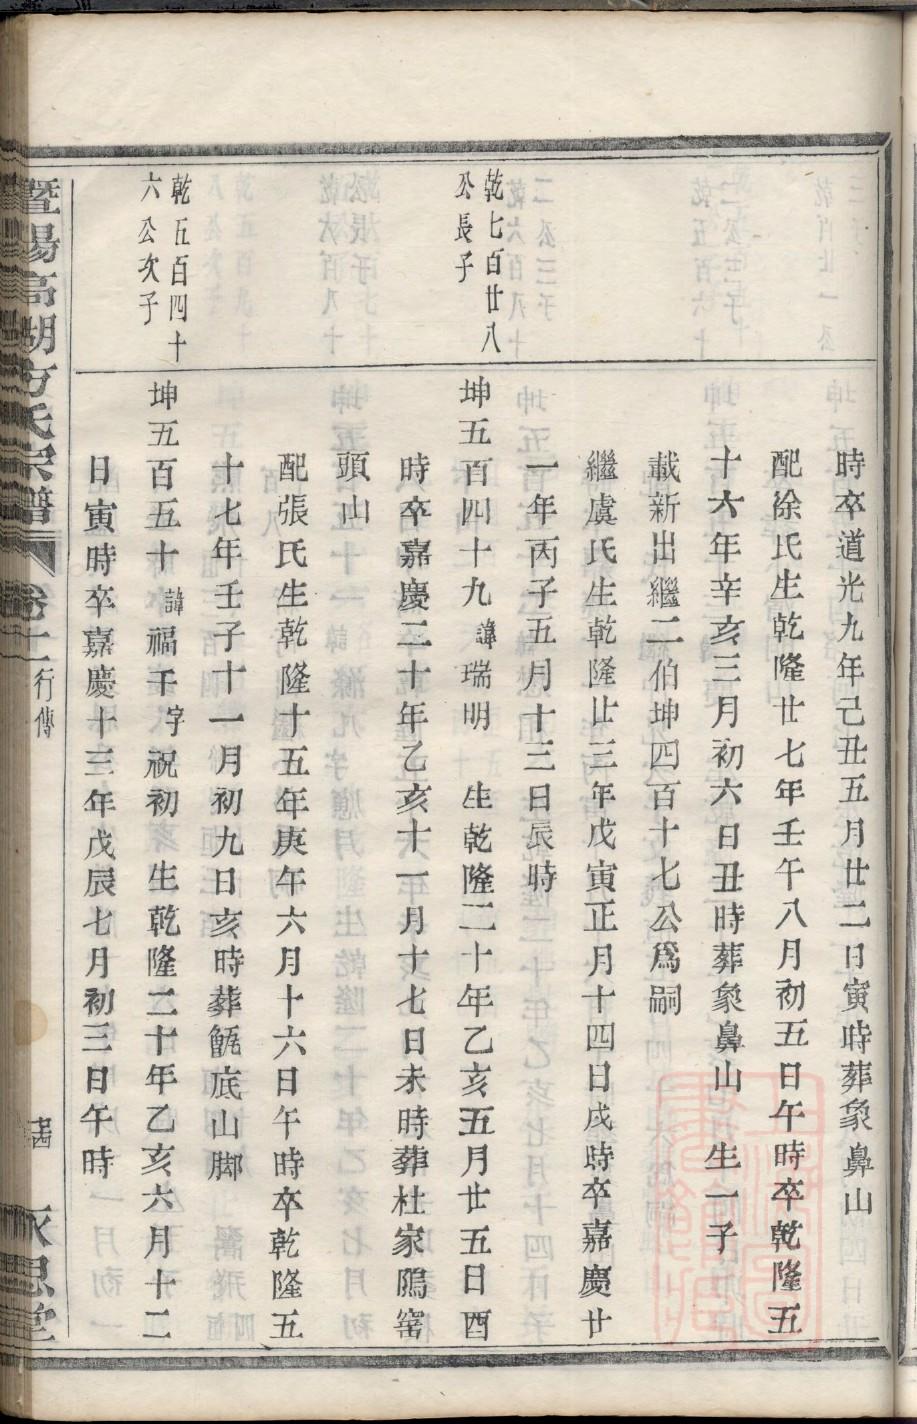 時卒道光九年己丑五月廿二日寅時葬象鼻山
配徐氏生乾隆廿七年壬午八月初五日午時卒乾隆五
十六年辛亥三月初六日丑時葬象鼻山 生一子
載新出繼二伯坤四百十七公爲嗣
繼虞氏生乾隆廿三年戊寅正月十四日戌時卒嘉慶廿
一年丙子五月十三日辰時
乾七百廿八
公長子
坤五百四十九諱瑞明 生乾隆二十年乙亥五月廿五日酉
時卒嘉慶二十年乙亥十一月十七日未時葬杜家隖窑
頭山
配張氏生乾隆十五年庚午六月十六日午時卒乾隆五
十七年壬子十一月初九日亥時葬甑底山脚
乾五百四十
六公次子
坤五百五十諱福千字祝初 生乾隆二十年乙亥六月十二
日寅時卒嘉慶十三年戊辰七月初三日午時
暨陽高湖方氏宗譜 卷十 行傳 永思堂